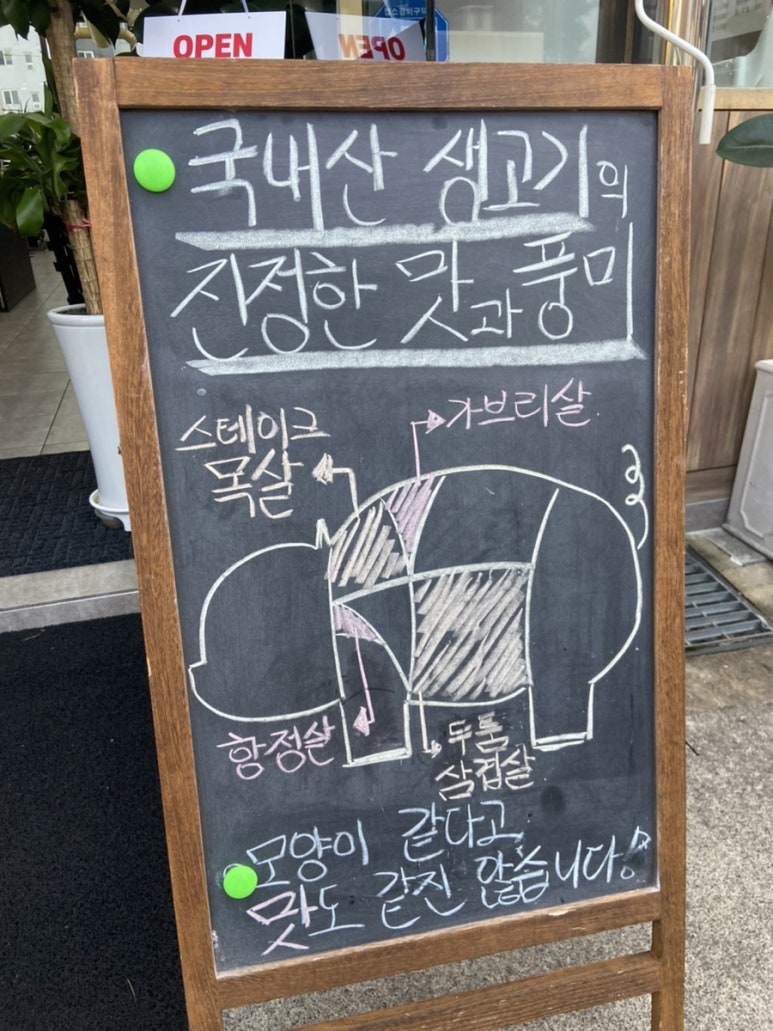 OPEN
OPEN
국내산 생고기의
진정한 맛과 풍미
가브리살
스테이크
목살
항정살
두툼
삼겹살
모양이 같다고
맛도 같진 않습니다!